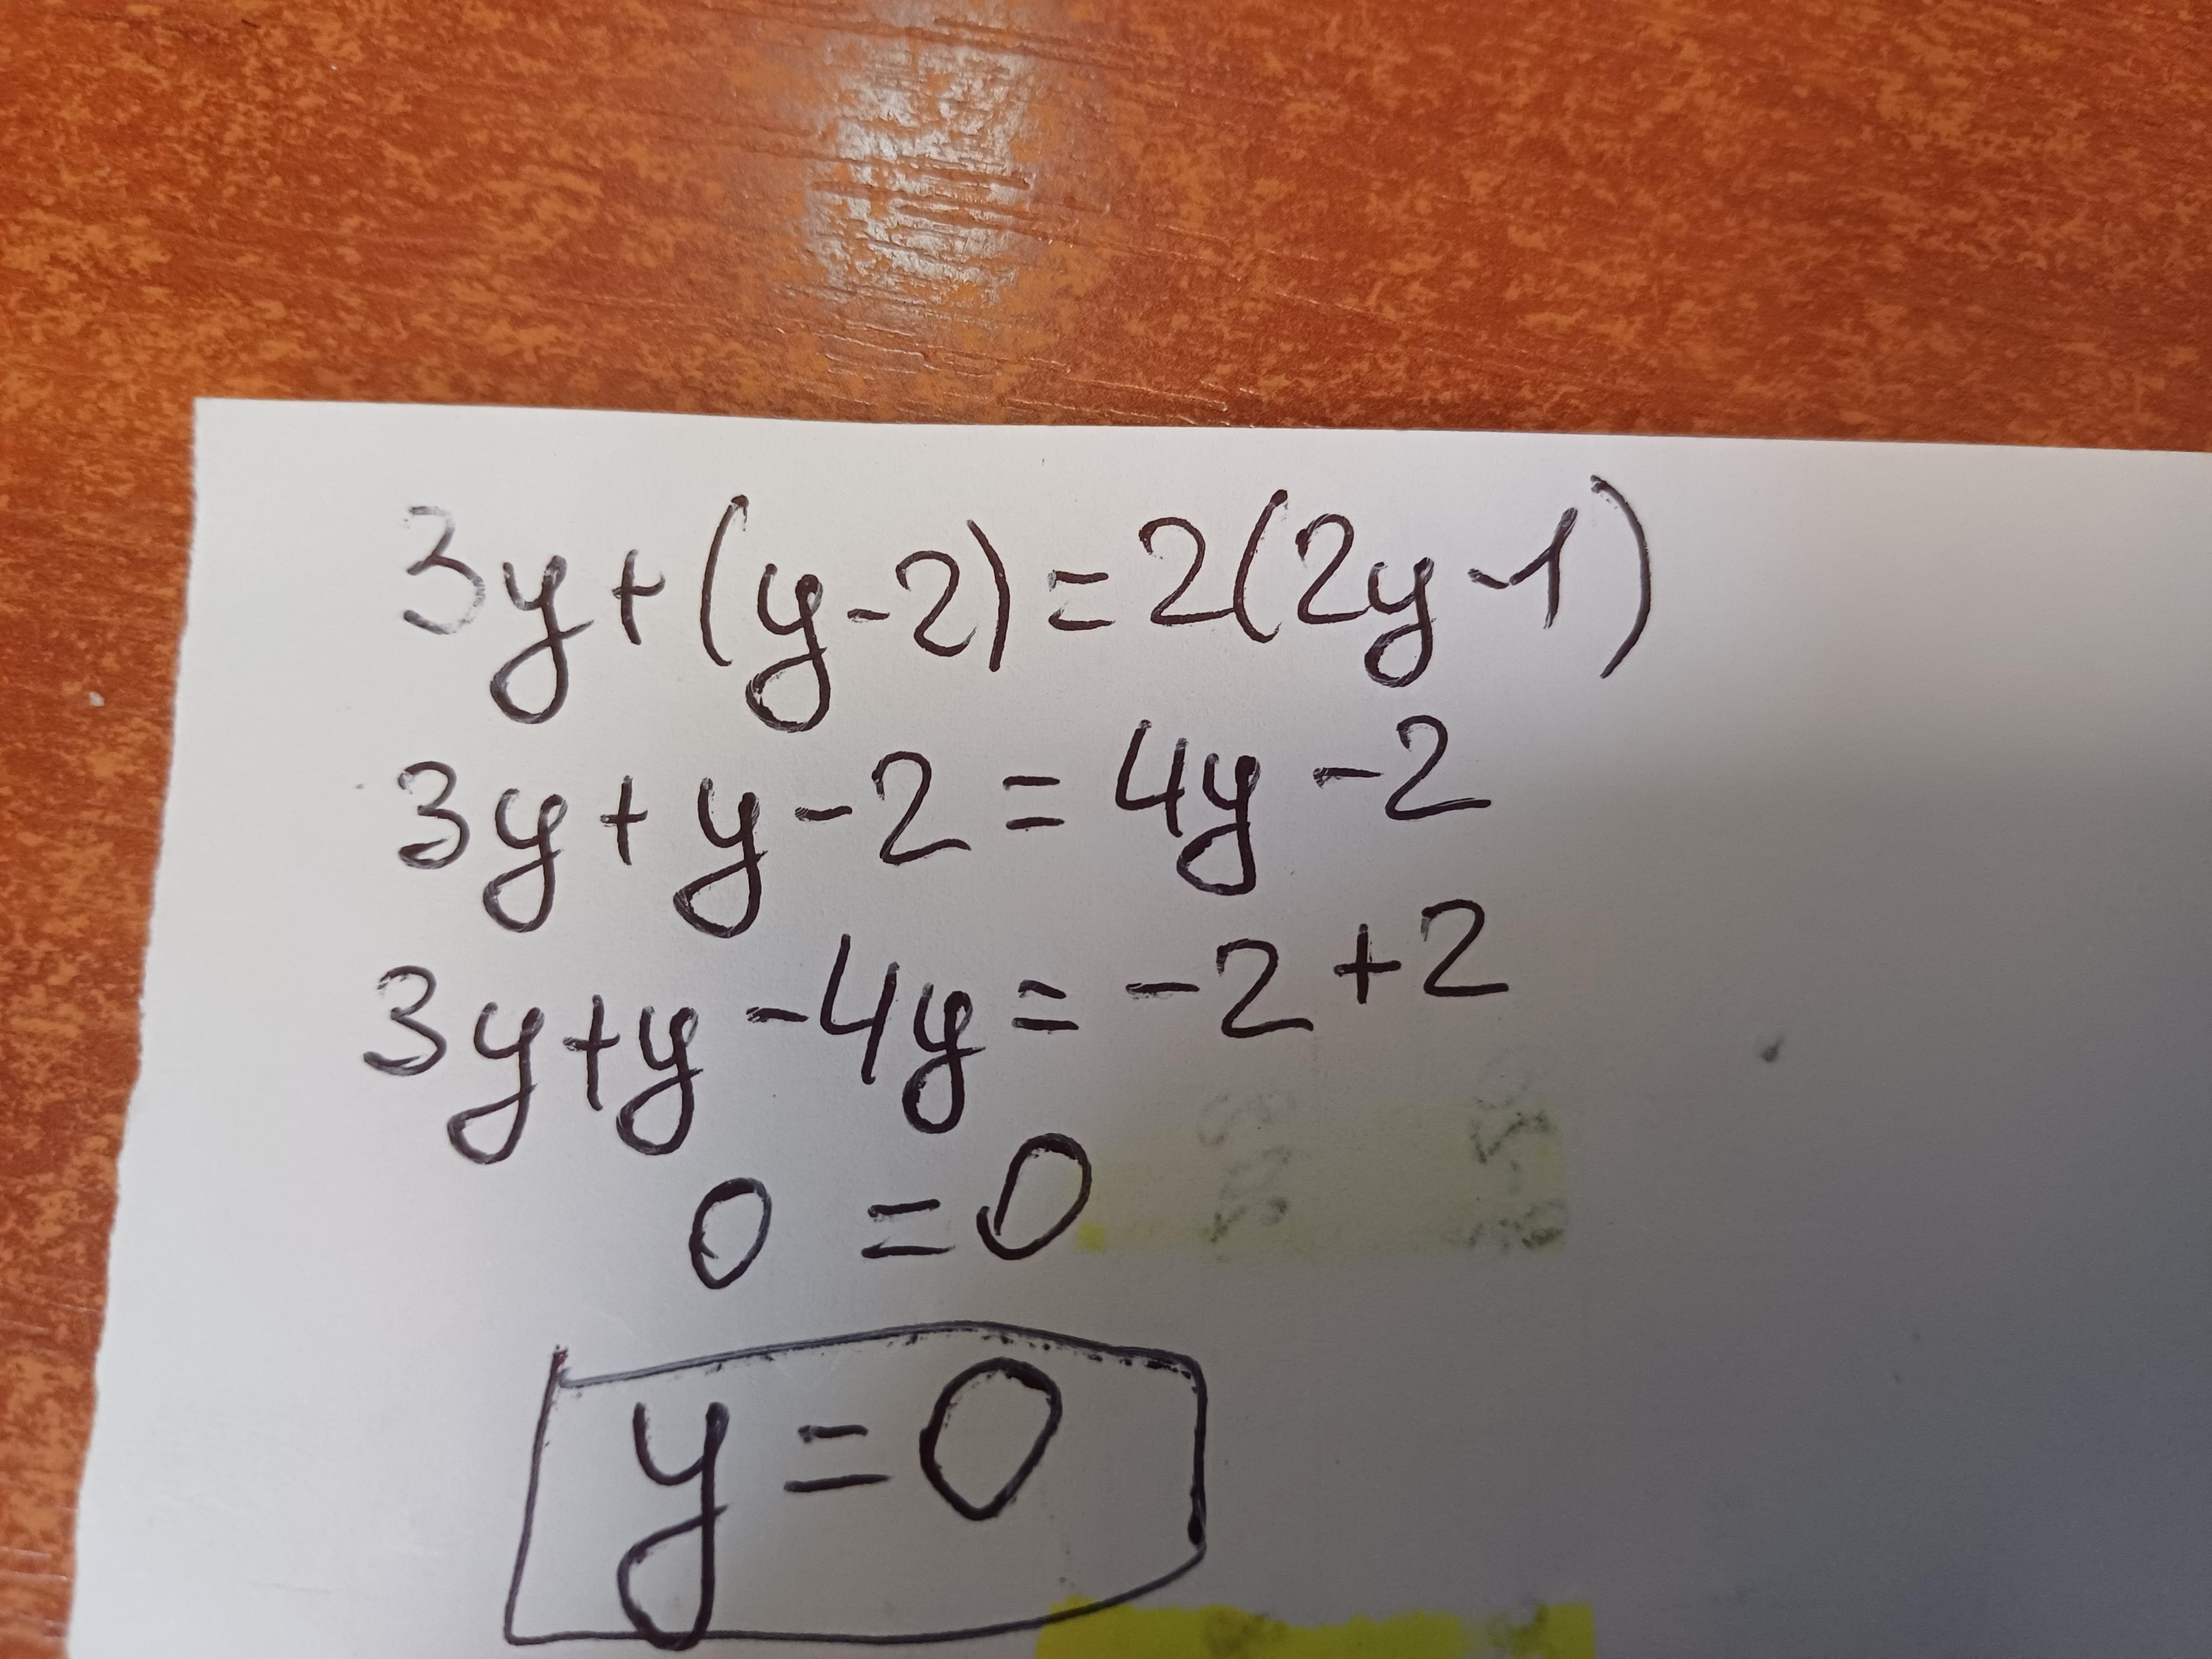 3y+(y-2)=2(2y-1)
3y+y-2=4y-2
3y+y-4y=-2+2
0=0
y=0